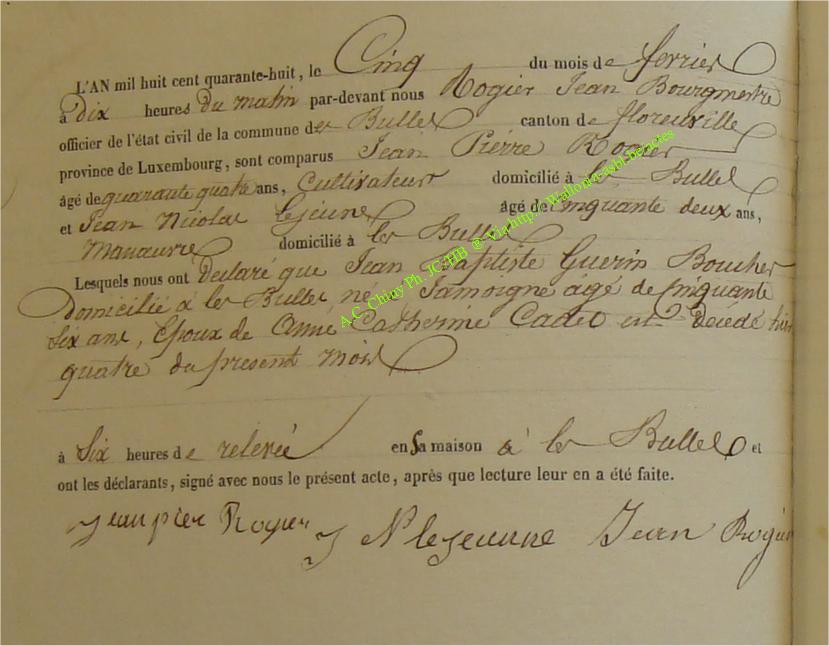 L'AN mil huit cent quarante-huit, le Cinq du mois de fevrier
à dix heures du matin par-devant nous Rogier Jean Bourgmestre
officier de l'état civil de la commune de les Bulles canton de florenville
province de Luxembourg, sont comparus Jean Pierre Rogier
âgé de quarante quatre ans, Cultivateur domicilié à les Bulles
et Jean Nicolas Lejeune âgé de Cinquante deux ans,
Manœuvre domicilié à les Bulles
Lesquels nous ont déclaré que Jean Baptiste Guerin Boucher
Domicilié à les Bulles né Jamoigne agé de Cinquante
Six ans, Epoux de Anne Catherine Cadet est décédé hier
quatre du present mois
à Six heures de relevée en Sa maison à les Bulles et
ont les déclarants, signé avec nous le présent acte, après que lecture leur en a été faite.
Jean pier Rogier J N lejeunne Jean Rogier
A.C. Chiny Ph. JC HB @ Via http://Wallonica